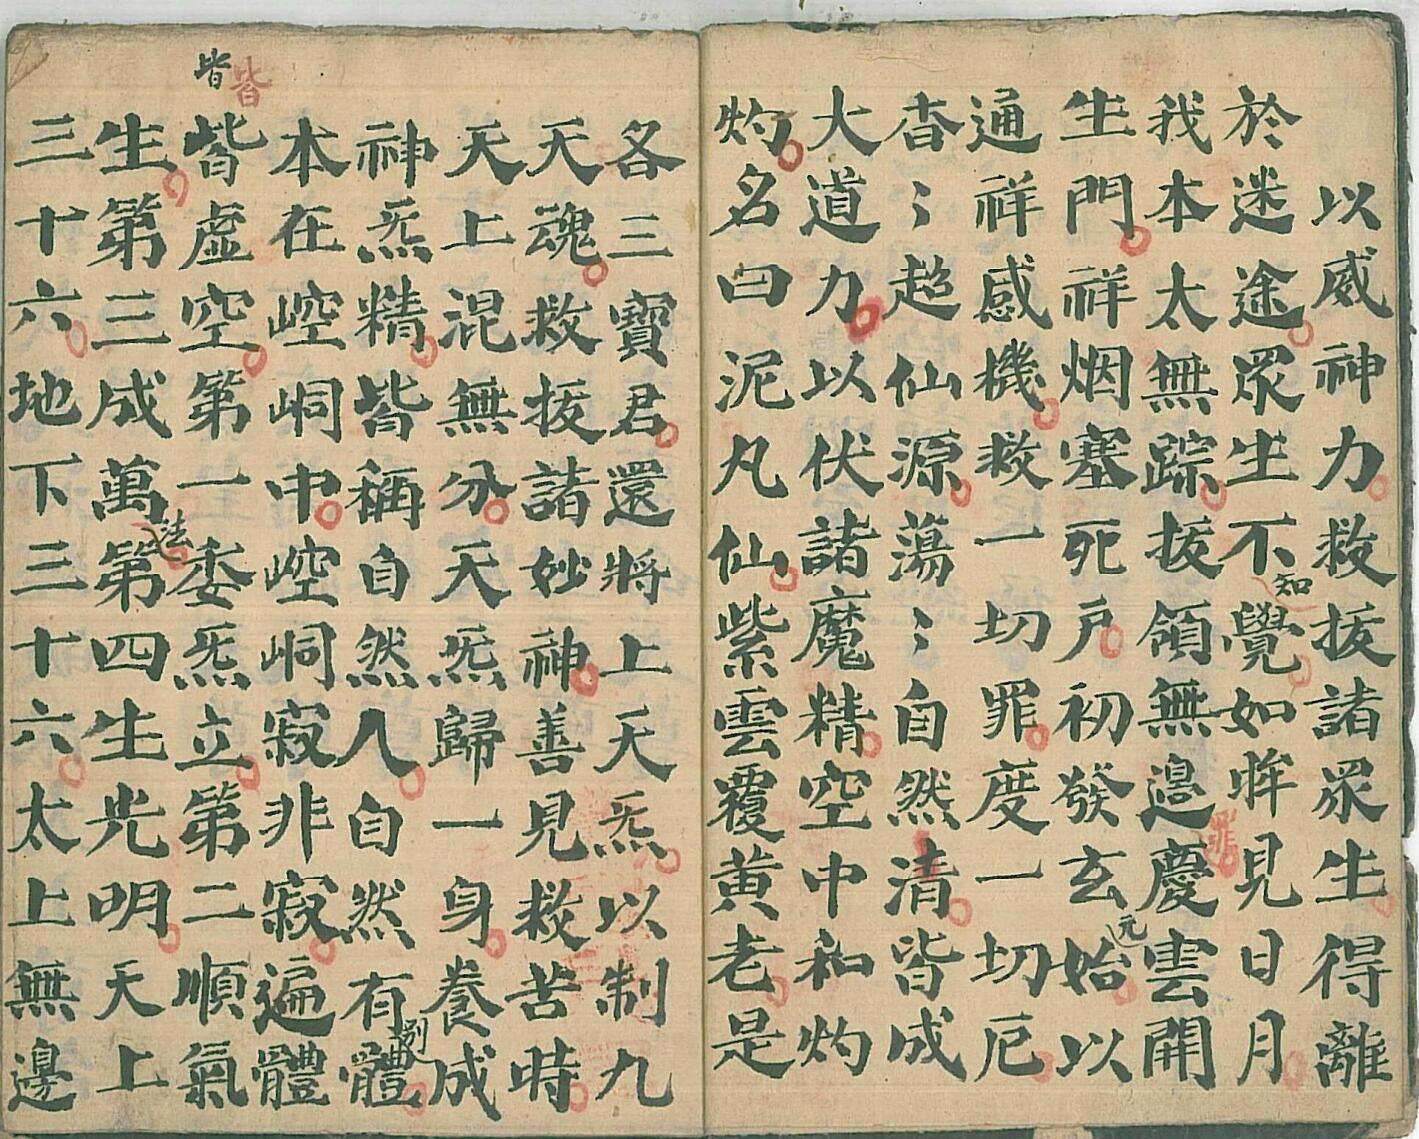 以威神力救拔諸眾生得離
於迷途眾生不知覺如眸見日月
我本太無踪拔領無邊慶雲開
罪
生門祥烟塞死户初發玄元始以
通祥感機救一切罪度一切厄
杳〻超仙源蕩〻自然清皆成
大道力以伏諸魔精空中和灼
灼名曰泥丸仙紫雲覆黄老是
各三寶君還將上天炁以制九
天魂救拔諸妙神善見救苦時
天上混無分天炁歸一身養成
神炁精皆稱自然人自然有別體
本在崆峒中崆峒寂非寂遍體
皆 皆
皆虛空第一委炁立第二順氣
生第三成萬法第四生光明天上
三十六地下三十六太上無邊